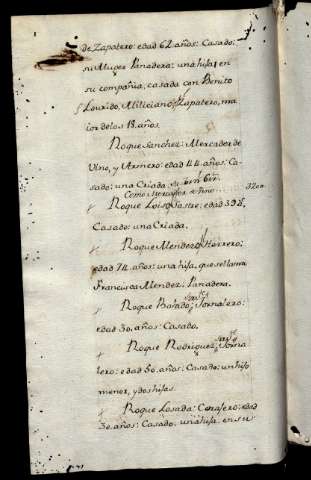 de Zapatero: edad 62. años: Casado:
su Muger Panadera: una hija en
su compañia, casada con Benito
Lourido, Miliciano, Zapatero, ma
ior de los 18. años.
Roque Sanchez: Mercader de
Vino, y Arriero: edad 44. años: Ca-
sado: una Criada,
Como Mercader de vino 3200
Roque Lois, Sastre: edad 39 
Casado: una Criada.
Roque Mendez, Herrero:
edad 74. años: una hija, que se llama
Francisca Mendez: Panadera.
Roque Bolado; Jornalero:
edad 30. años: Casado.
Roque Rodriguez, Jorna-
lero: edad 50. años: Casado: un hijo
menor, y dos hijas.
Roque Losada: edad
30. años: Casado: una hija. en su